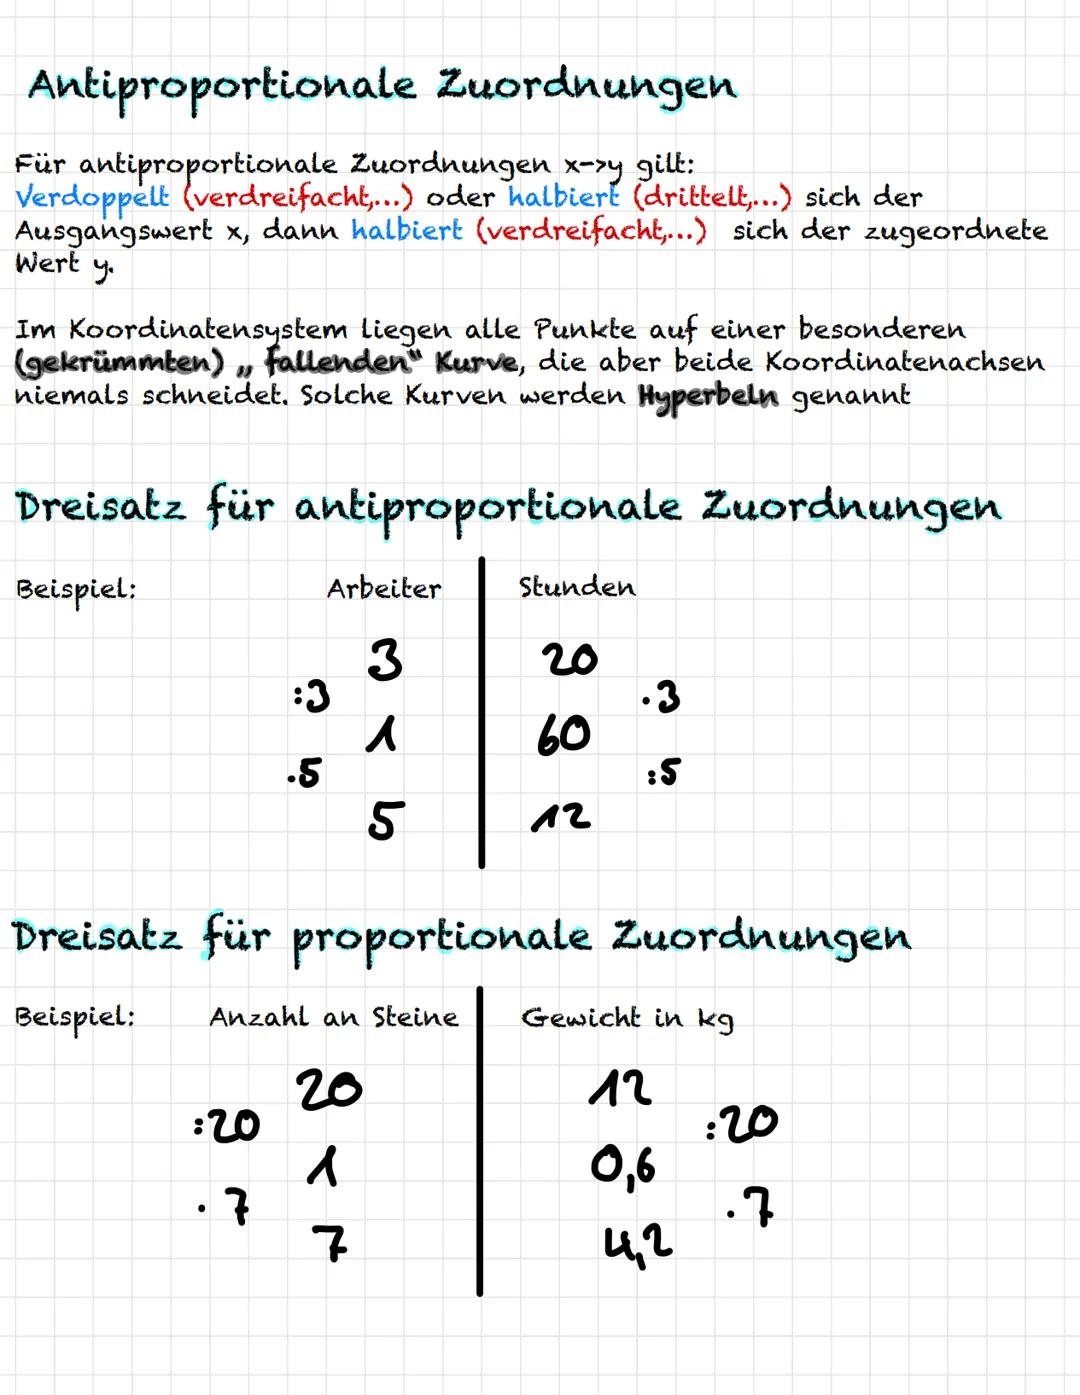 Antiproportionale Zuordnungen
Für antiproportionale Zuordnungen x->y gilt:
Verdoppelt (verdreifacht,...) oder halbiert (drittelt,...) sich der
Ausgangswert x, dann halbiert (verdreifacht,...) sich der zugeordnete
Wert y.
Im Koordinatensystem liegen alle Punkte auf einer besonderen
(gekrümmten) „ fallenden“ Kurve, die aber beide Koordinatenachsen
niemals schneidet. Solche Kurven werden Hyperbeln genannt
Dreisatz für antiproportionale Zuordnungen
Beispiel: Arbeiter Stunden
3 20
:3 .3
1 60
.5 :5
5 12
Dreisatz für proportionale Zuordnungen
Beispiel: Anzahl an Steine Gewicht in kg
20 12
:20 :20
1 0,6
. 7 .7
7 4,2